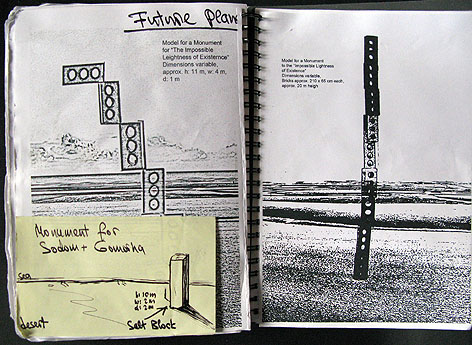 Future Plan
Model for a Monument
for "The Impossible
Leightness of Existernce"
Dimensions variable,
approx. h: 11 m, w: 4 m,
d: 1 m
Monument for
Sodom + Gomorrha
Sea
h: 10m
w: 2m
d: 2m
desert
Salt Block
Model for a Monument
to the "Impossible Lightness
of Existence"
Dimensions variable,
Bricks approx. 210 x 65 cm each,
approx. 20 m heigh